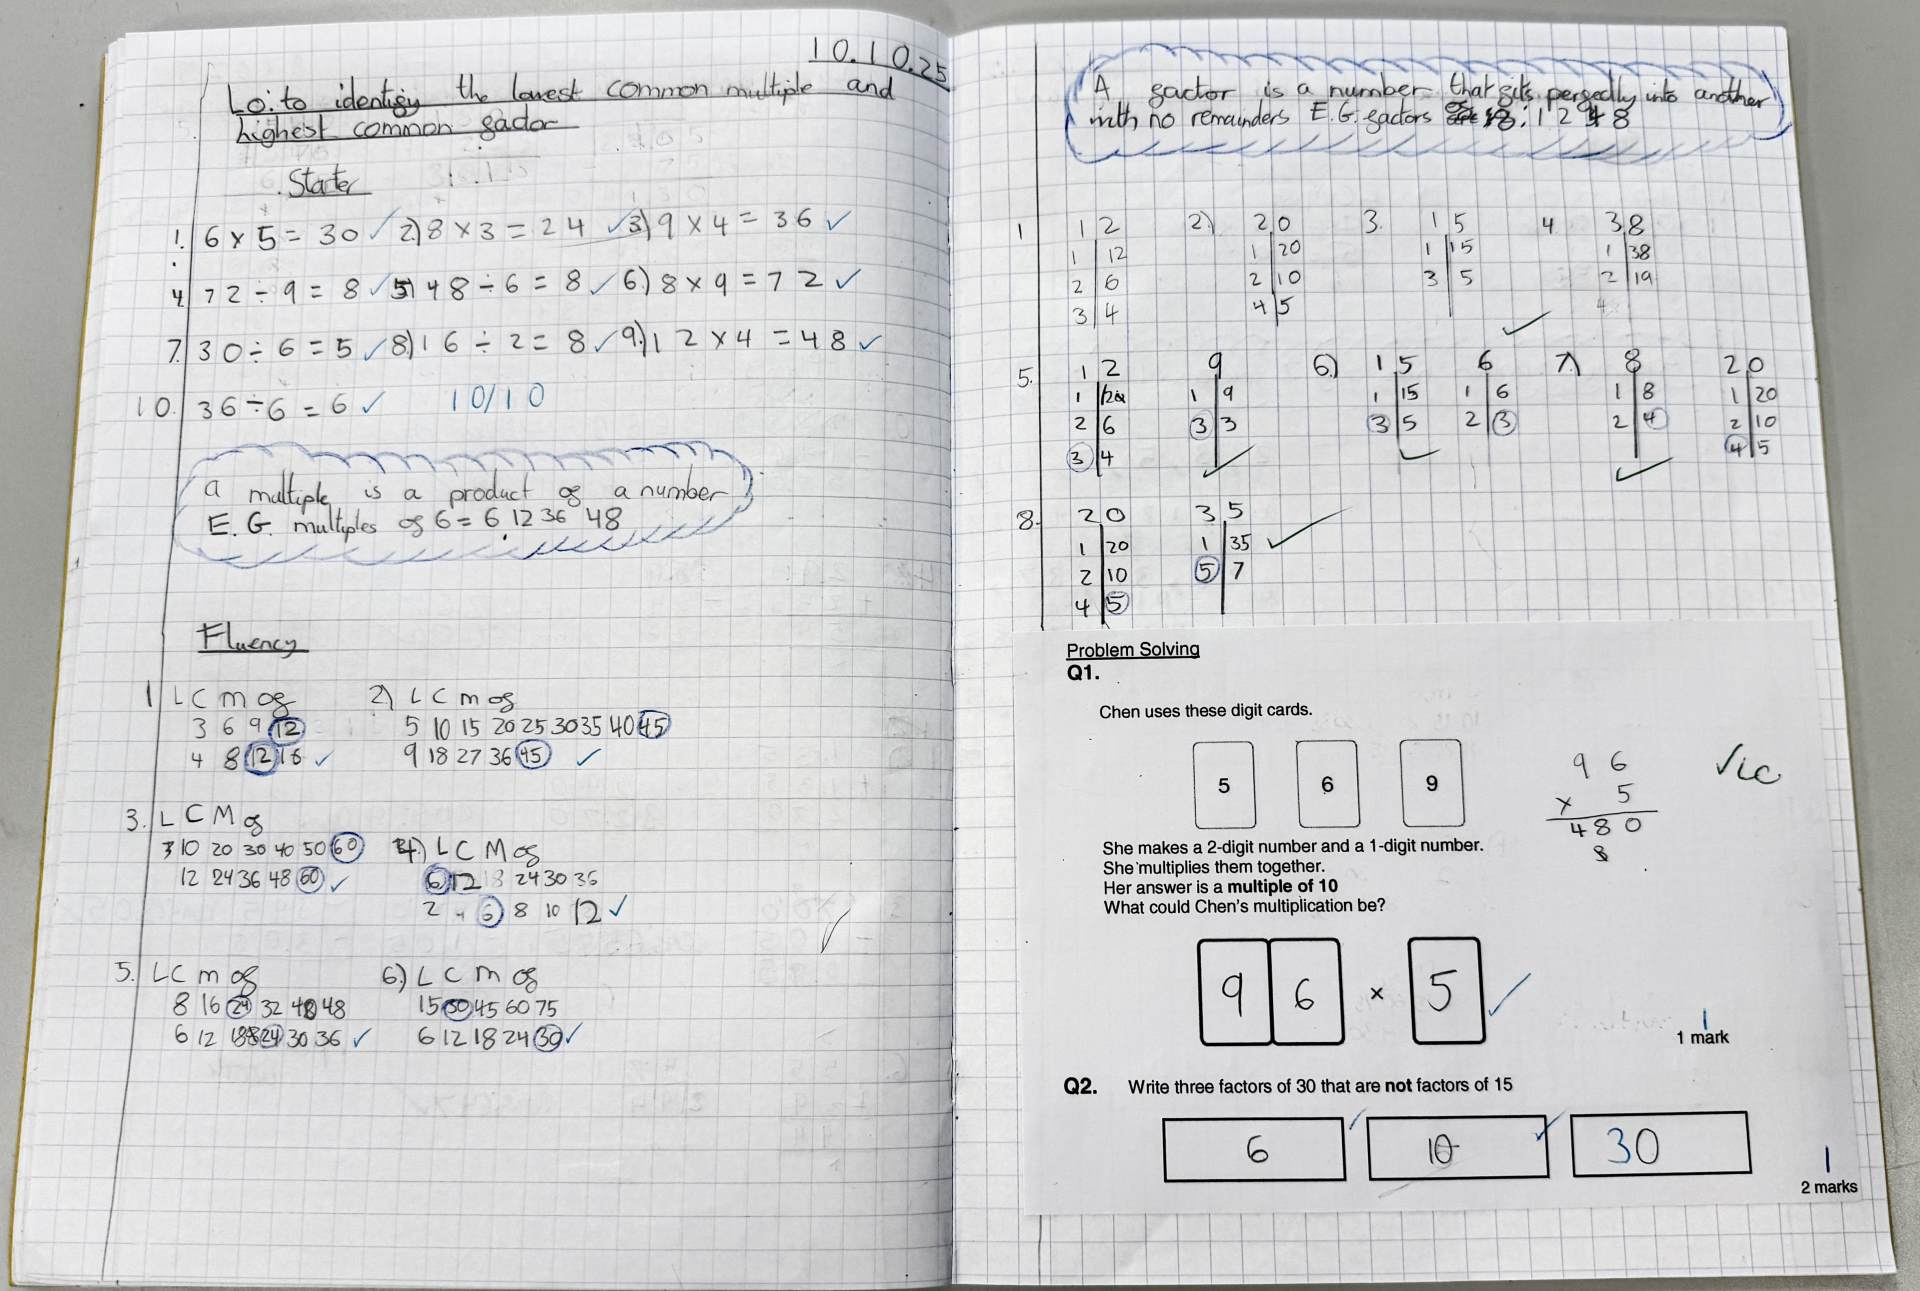 10.10.25
Lo: to identify the lowest common multiple and
highest common factor
Starter
1. 6 x 5 = 30 ✓ 2) 8 x 3 = 24 ✓ 3) 9 x 4 = 36 ✓
4. 72 ÷ 9 = 8 ✓ 5) 48 ÷ 6 = 8 ✓ 6.) 8 x 9 = 72 ✓
7. 30 ÷ 6 = 5 ✓ 8) 16 ÷ 2 = 8 ✓ 9.) 12 x 4 = 48 ✓
10. 36 ÷ 6 = 6 ✓ 10/10
a multiple is a product of a number
E.G. multiples of 6 = 6 12 36 48
Fluency
1 LCm of 2) LCm of
3 6 9 12 5 10 15 20 25 30 35 40 45
4 8 12 16 ✓ 9 18 27 36 45 ✓
3. LCM of
10 20 30 40 50 60 4.) LCM of
12 24 36 48 60 ✓ 6 12 18 24 30 36
2 4 6 8 10 12 ✓
5. LCm of 6.) LCm of
8 16 24 32 40 48 15 30 45 60 75
6 12 18 24 30 36 ✓ 6 12 18 24 30 ✓
A factor is a number that fits perfectly into another
with no remainders E.G. factors of 8: 1 2 4 8
1 12 2.) 20 3. 15 4 38
1 12 1 20 1 15 1 38
2 6 2 10 3 5 2 19
3 4 4 5 4
✓
5. 12 9 6.) 15 6 7.) 8 20
1 12 1 9 1 15 1 6 1 8 1 20
2 6 3 3 3 5 2 3 2 4 2 10
3 4 ✓ ✓ ✓ 4 5
8. 20 35
1 20 1 35 ✓
2 10 5 7
4 5
Problem Solving
Q1.
Chen uses these digit cards.
5 6 9
96
x 5
480
8
She makes a 2-digit number and a 1-digit number.
She multiplies them together.
Her answer is a multiple of 10
What could Chen's multiplication be?
9 6 × 5 ✓
1
1 mark
Q2. Write three factors of 30 that are not factors of 15
6 ✓ 10 ✓ 30
1
2 marks